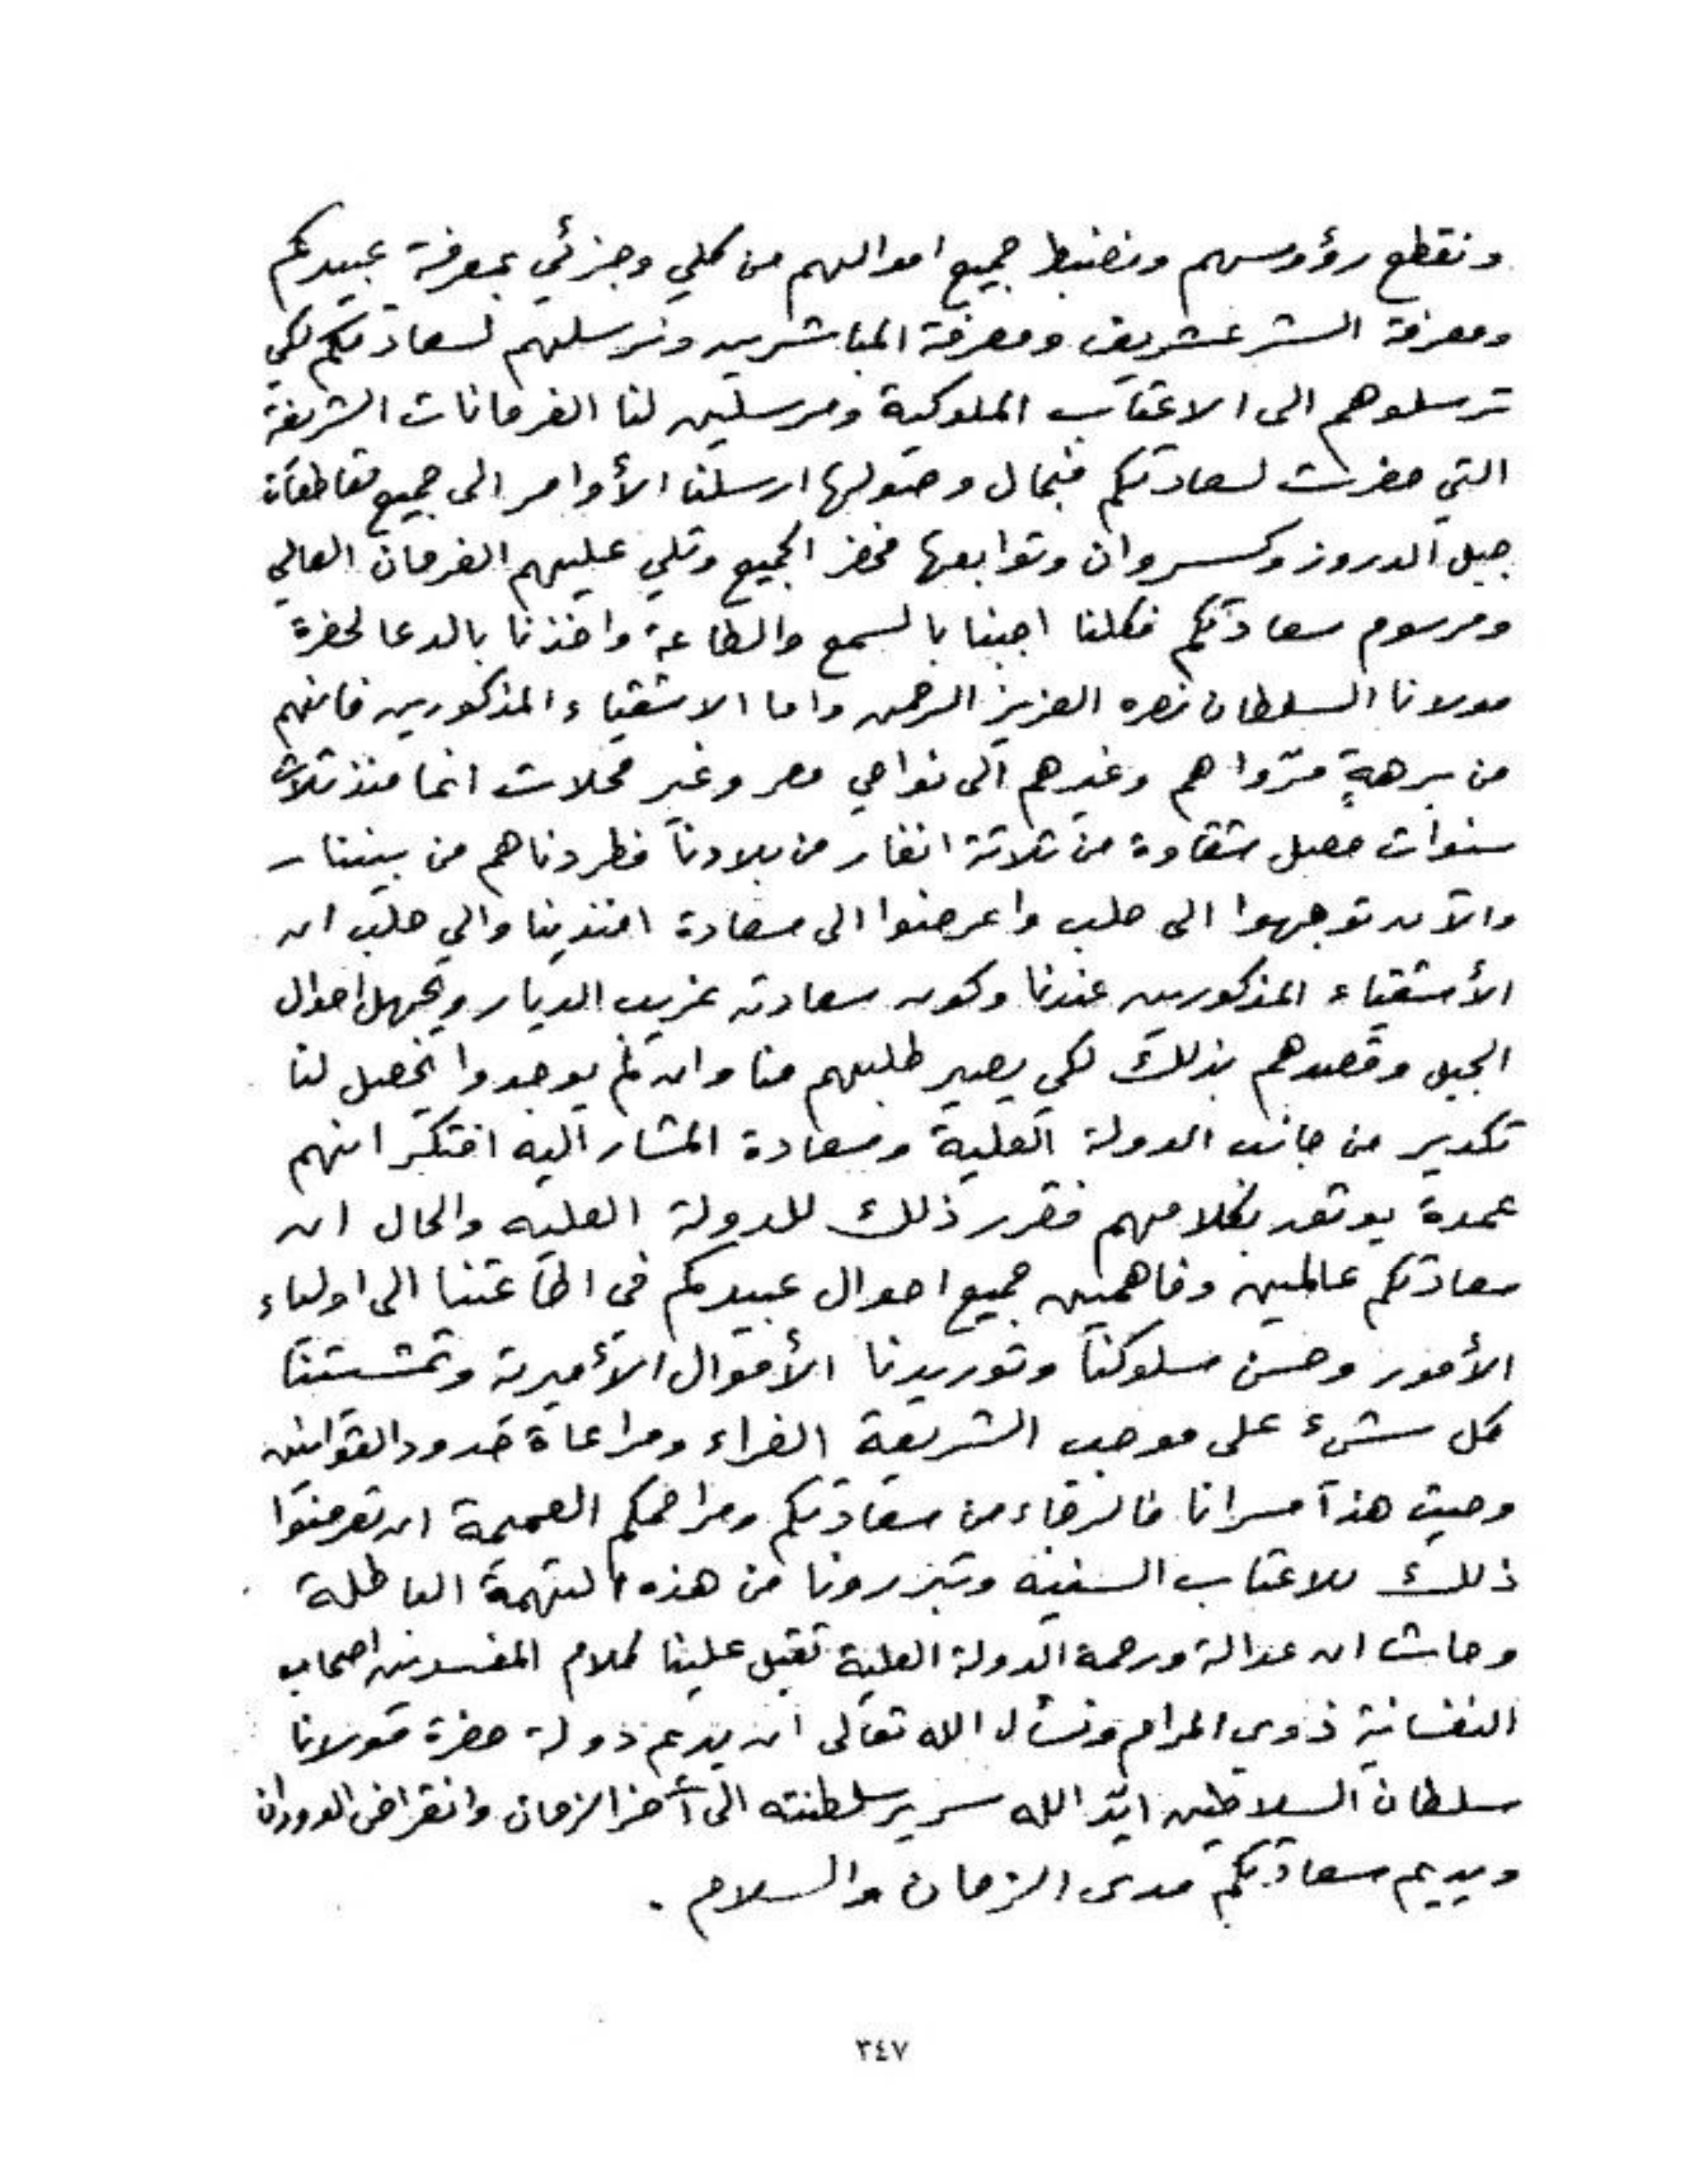 ونقطع رؤوسهم ونضبط جميع اموالهم من كلي وجزئي بمعرفة عبيدكم
ومعرفة الشرع شريف ومعرفة المباشرين ونرسلهم لسعادتكم لكي
ترسلوهم الى الاعتاب الملوكية ومرسلين لنا الفرمانات الشريفة
التي حضرت لسعادتكم فبحال وصولها ارسلنا الأوامر الى جميع مقاطعات
جبل الدروز وكسروان وتوابعها فحضر الجميع وتلي عليهم الفرمان العالي
ومرسوم سعادتكم فكلنا اجبنا بالسمع والطاعة واخذنا بالدعا لحضرة
مولانا السلطان نصره العزيز الرحمن واما الاشقياء المذكورين فانهم
من برهةٍ مرّوا هم وغيرهم الى نواحي مصر وغير محلات انما منذ ثلاث
سنوات حصل شقاوة من ثلاثة انفار من بلادنا فطردناهم من بيننا
والآن توجهوا الى حلب واعرضوا الى سعادة افندينا والي حلب ان
الأشقياء المذكورين عندنا وكون سعادته غريب الديار ويجهل احوال
الجبل وقصدهم بذلك لكي يصير طلبهم منا وان لم يوجدوا يحصل لنا
تكدير من جانب الدولة العلية وسعادة المشار اليه افتكر انهم
عمدة يوثق بكلامهم فقرر ذلك للدولة العليه والحال ان
سعادتكم عالمين وفاهمين جميع احوال عبيدكم في اطاعتنا الى اولياء
الأمور وحسن سلوكنا وتوريدنا الأموال الأميرية وتمشيتنا
كل شيء على موجب الشريعة الغراء ومراعاة حدود القوانين
وحيث هذا مسرانا فالرجاء من سعادتكم ومراحمكم العميمة ان تعرضوا
ذلك للاعتاب السنيه وتبررونا من هذه التهمة الباطلة
وحاشا ان عدالة ورحمة الدولة العلية تقبل علينا كلام المفسدين اصحاب
النفسانية ذوي المرام ونسأل الله تعالى ان يديم دولة حضرة مولانا
سلطان السلاطين ايّد الله سرير سلطنته الى آخر الزمان وانقراض الدوران
ويديم سعادتكم مدى الزمان والسلام .
٣٤٧